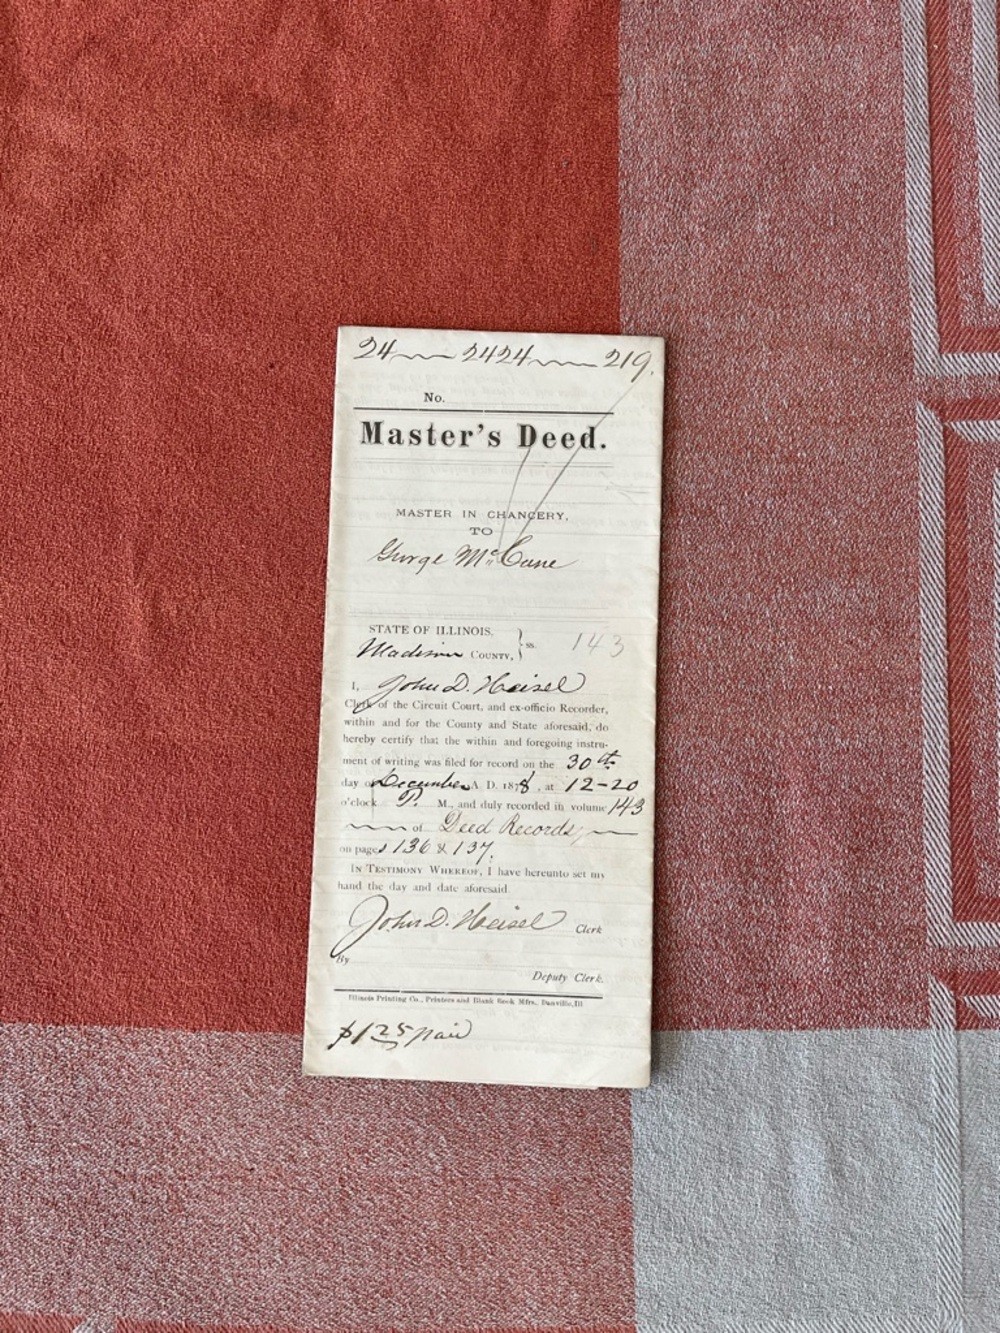 24 2424 219.
No.
Master's Deed.
MASTER IN CHANCERY,
TO
George McCune
STATE OF ILLINOIS,
Madison COUNTY, } ss. 143
I, John D. Heisel
Clerk of the Circuit Court, and ex-officio Recorder,
within and for the County and State aforesaid, do
hereby certify that the within and foregoing instru-
ment of writing was filed for record on the 30th
day of December A. D. 1878, at 12-20
o'clock P. M., and duly recorded in volume 143
of Deed Records,
on pages 136 & 137.
IN TESTIMONY WHEREOF, I have hereunto set my
hand the day and date aforesaid
John D. Heisel Clerk
By
Deputy Clerk.
Illinois Printing Co., Printers and Blank Book Mfrs., Danville, Ill
$1.25 paid